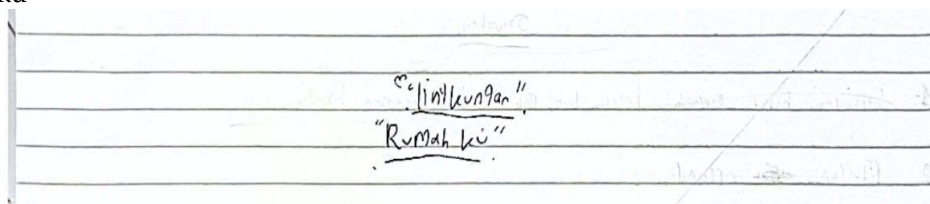 "lingkungan"
"Rumah ku"